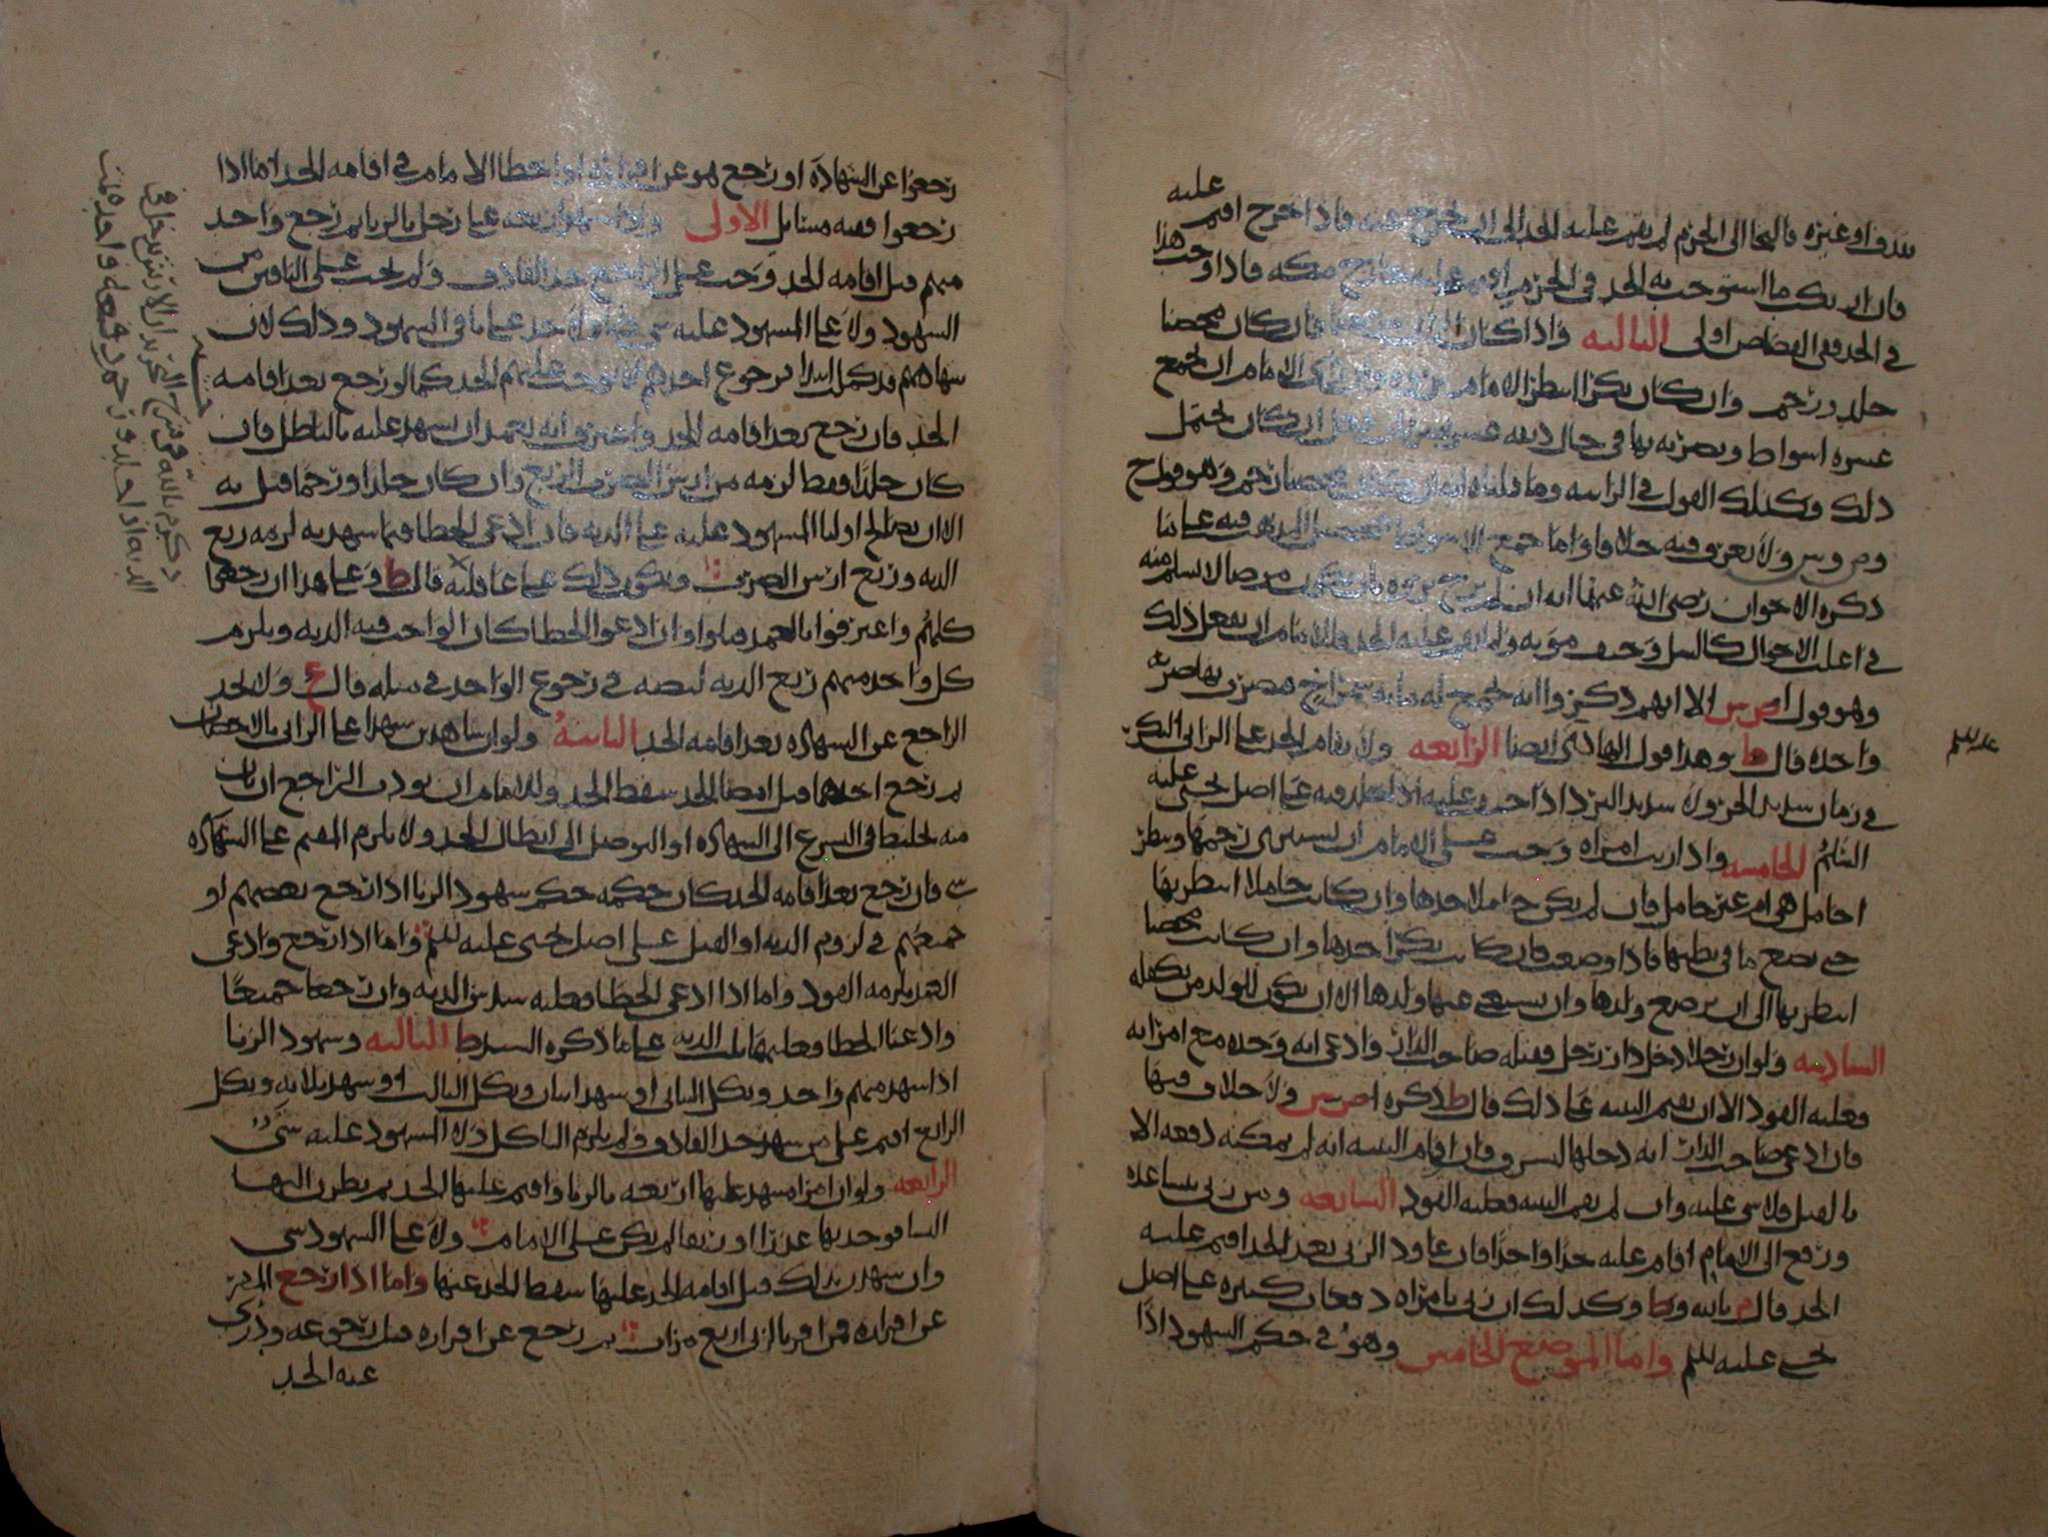 عليه
بقذف او غيره فالتجا الى الحرم لم يقم عليه الحد الى ان يخرج منه فاذا خرج اقيم
فان ارتكب ما استوجب به الحد في الحرم اقيم عليه خارج مكه فاذا وجب هذا
في الحد ففي القصاص اولى الثالثه واذا كان فان كان محصنا
جلد ورجم وان كان بكرا انتظر الامام الامام ان يجمع
عشره اسواط ويضربه بها في حال ان كان يحتمل
ذلك وكذلك القول في الزانيه وما قلناه رجم وهو قول ح
وص وس ولا نعرف فيه خلافا واما جمع الاسواط على ما
ذكره الاخوان رضي الله عنهما انه ان لم يرج مرضا لا يسلم منه
في اغلب الاحوال كالسل وخيف موته ولم يقم عليه الحد فللامام ان يفعل ذلك
وهو قول اص س الا انهم ذكروا انه يجمع له مايه شمراخ فيضرب بها ضربه
واحده قال ط وهذا قول الهادي ايضا الرابعه ولا يقام الحد على الزاني البكر
عليه السلم
في زمان شديد الحر ولا شديد البرد اذا خيف عليه على اصل يحيى عليه
السلم الخامسه واذا زنت امراه وجب على الامام ان يستبري رحمها وينظر
احامل هي ام غير حامل فان لم يكن حاملا حدها وان كانت حاملا انتظر بها
حتى تضع ما في بطنها فاذا وضعت فان كانت بكرا حدها وان كانت محصنا
انتظر بها الى ان ترضع ولدها وان يستغني عنها ولدها الا ان يكون للولد من يكفله
السادسه ولو ان رجلا دخل دار رجل فقتله صاحب الدار وادعى انه وجده مع امراته
فعليه القود الا ان يقيم البينه على ذلك قال ط ذكره اص س ولا خلاف فيها
فان ادعى صاحب الدار انه دخلها ليسرق فان اقام البينه انه لم يمكنه دفعه الا
بالقتل فلا شي عليه وان لم يقم البينه فعليه القود السابعه ومن زنى بنسا عده
ورفع الى الامام اقام عليه حدا واحدا فان عاود الزنى بعد الحد اقيم عليه
الحد قال م بالله وط وكذلك ان زنى بامراه دفعات كثيره على اصل
يحيى عليه السلم واما الموضع الخامس وهو في حكم الشهود اذا
رجعوا عن الشهاده او رجع هو عن اقراره او اخطا الامام في اقامه الحد اما اذا
رجعوا ففيه مسايل الاولى ولو شهد اربعه على رجل بالزنا ثم رجع واحد
منهم قبل اقامه الحد وجب على الراجع حد القاذف ولم يجب على الباقين من
الشهود ولا على المشهود عليه شي ولا حد على باقي الشهود وذلك لان
شهادتهم قد كملت فرجوع احدهم لا يوجب عليهم الحد كما لو رجع بعد اقامه
الحد فان رجع بعد اقامه الحد واعترف انه تعمد ان يشهد عليه بالباطل فان
كان جلدا فقط لزمه من ارش الضرب الربع وان كان جلدا ورجما قتل به
الا ان يصالح اوليا المشهود عليه على الديه فان ادعى الخطا فيما شهد به لزمه ربع
الديه وربع ارش الضرب ويكون ذلك على عاقلته قال ط وعلى هذا ان رجعوا
كلهم واعترفوا بالعمد قتلوا وان ادعوا الخطا كان الواجب فيه الديه ويلزم
كل واحد منهم ربع الديه لنصه في رجوع الواحد في مثله قال ع ولا يحد
الراجع عن الشهاده بعد اقامه الحد الثانيه ولو ان شاهدين شهدا على الزاني بالاحصان
ثم رجع احدهما قبل امضا الحد سقط الحد وللامام ان يودب الراجع ان بان
منه تخليط في التسرع الى الشهاده او التوصل الى ابطال الحد ولا يلزم المقيم على الشهاده
شي فان رجع بعد اقامه الحد كان حكمه حكم شهود الزنا اذا رجع بعضهم او
جميعهم في لزوم الديه او القتل على اصل يحيى عليه السلم واما اذا رجع وادعى
العمد يلزمه القود واما اذا ادعى الخطا فعليه سدس الديه وان رجعا جميعا
وادعيا الخطا فعليهما ثلث الديه على ما ذكره السيد ط الثالثه وشهود الزنا
اذا شهد منهم واحد ونكل الثاني او شهد اثنان ونكل الثالث او شهد ثلاثه ونكل
الرابع اقيم على من شهد حد القاذف ولم يلزم الناكل ولا المشهود عليه شي
الرابعه ولو ان امراه شهد عليها اربعه بالزنا واقيم عليها الحد ثم نظرن اليها
النسا فوجدنها عذرا او رتقا لم يكن على الامام ولا على الشهود شي
وان شهدن بذلك قبل اقامه الحد عليها سقط الحد عنها واما اذا رجع المقر
عن اقراره فمن اقر بالزنى اربع مرات ثم رجع عن اقراره قبل رجوعه ودري
عنه الحد